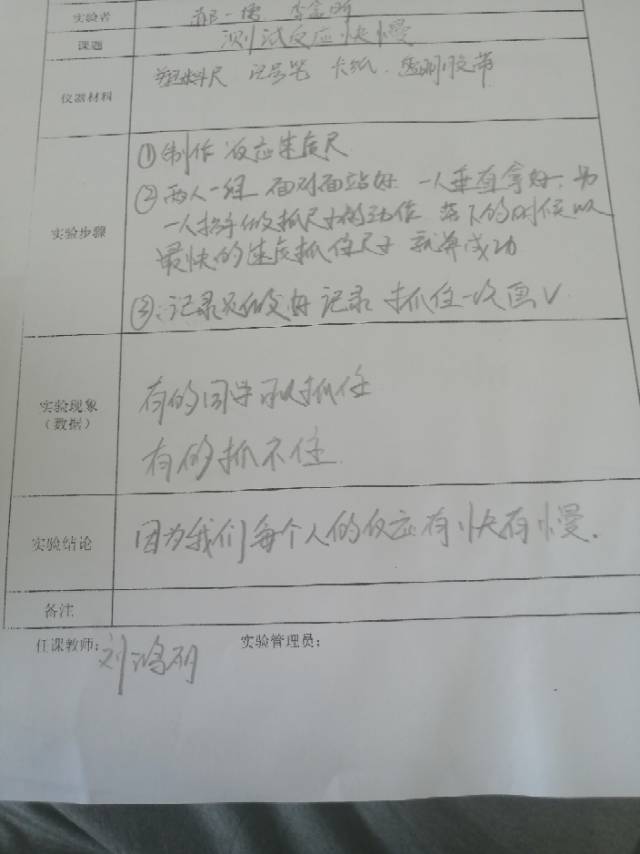 实验者 一儒 李金昕
课题 测试反应快慢
仪器材料 塑料尺 记号笔 卡纸 透明胶带
实验步骤 ①制作反应速度尺
②两人一组 面对面站好 一人垂直拿好,另
一人招手做抓尺子的动作 落下的时候以
最快的速度抓住尺子 就算成功
③:记录员做好记录 抓住一次画√
实验现象
(数据)
有的同学可以抓住
有的抓不住
实验结论 因为我们每个人的反应有快有慢.
备注
任课教师:刘鸿 实验管理员: